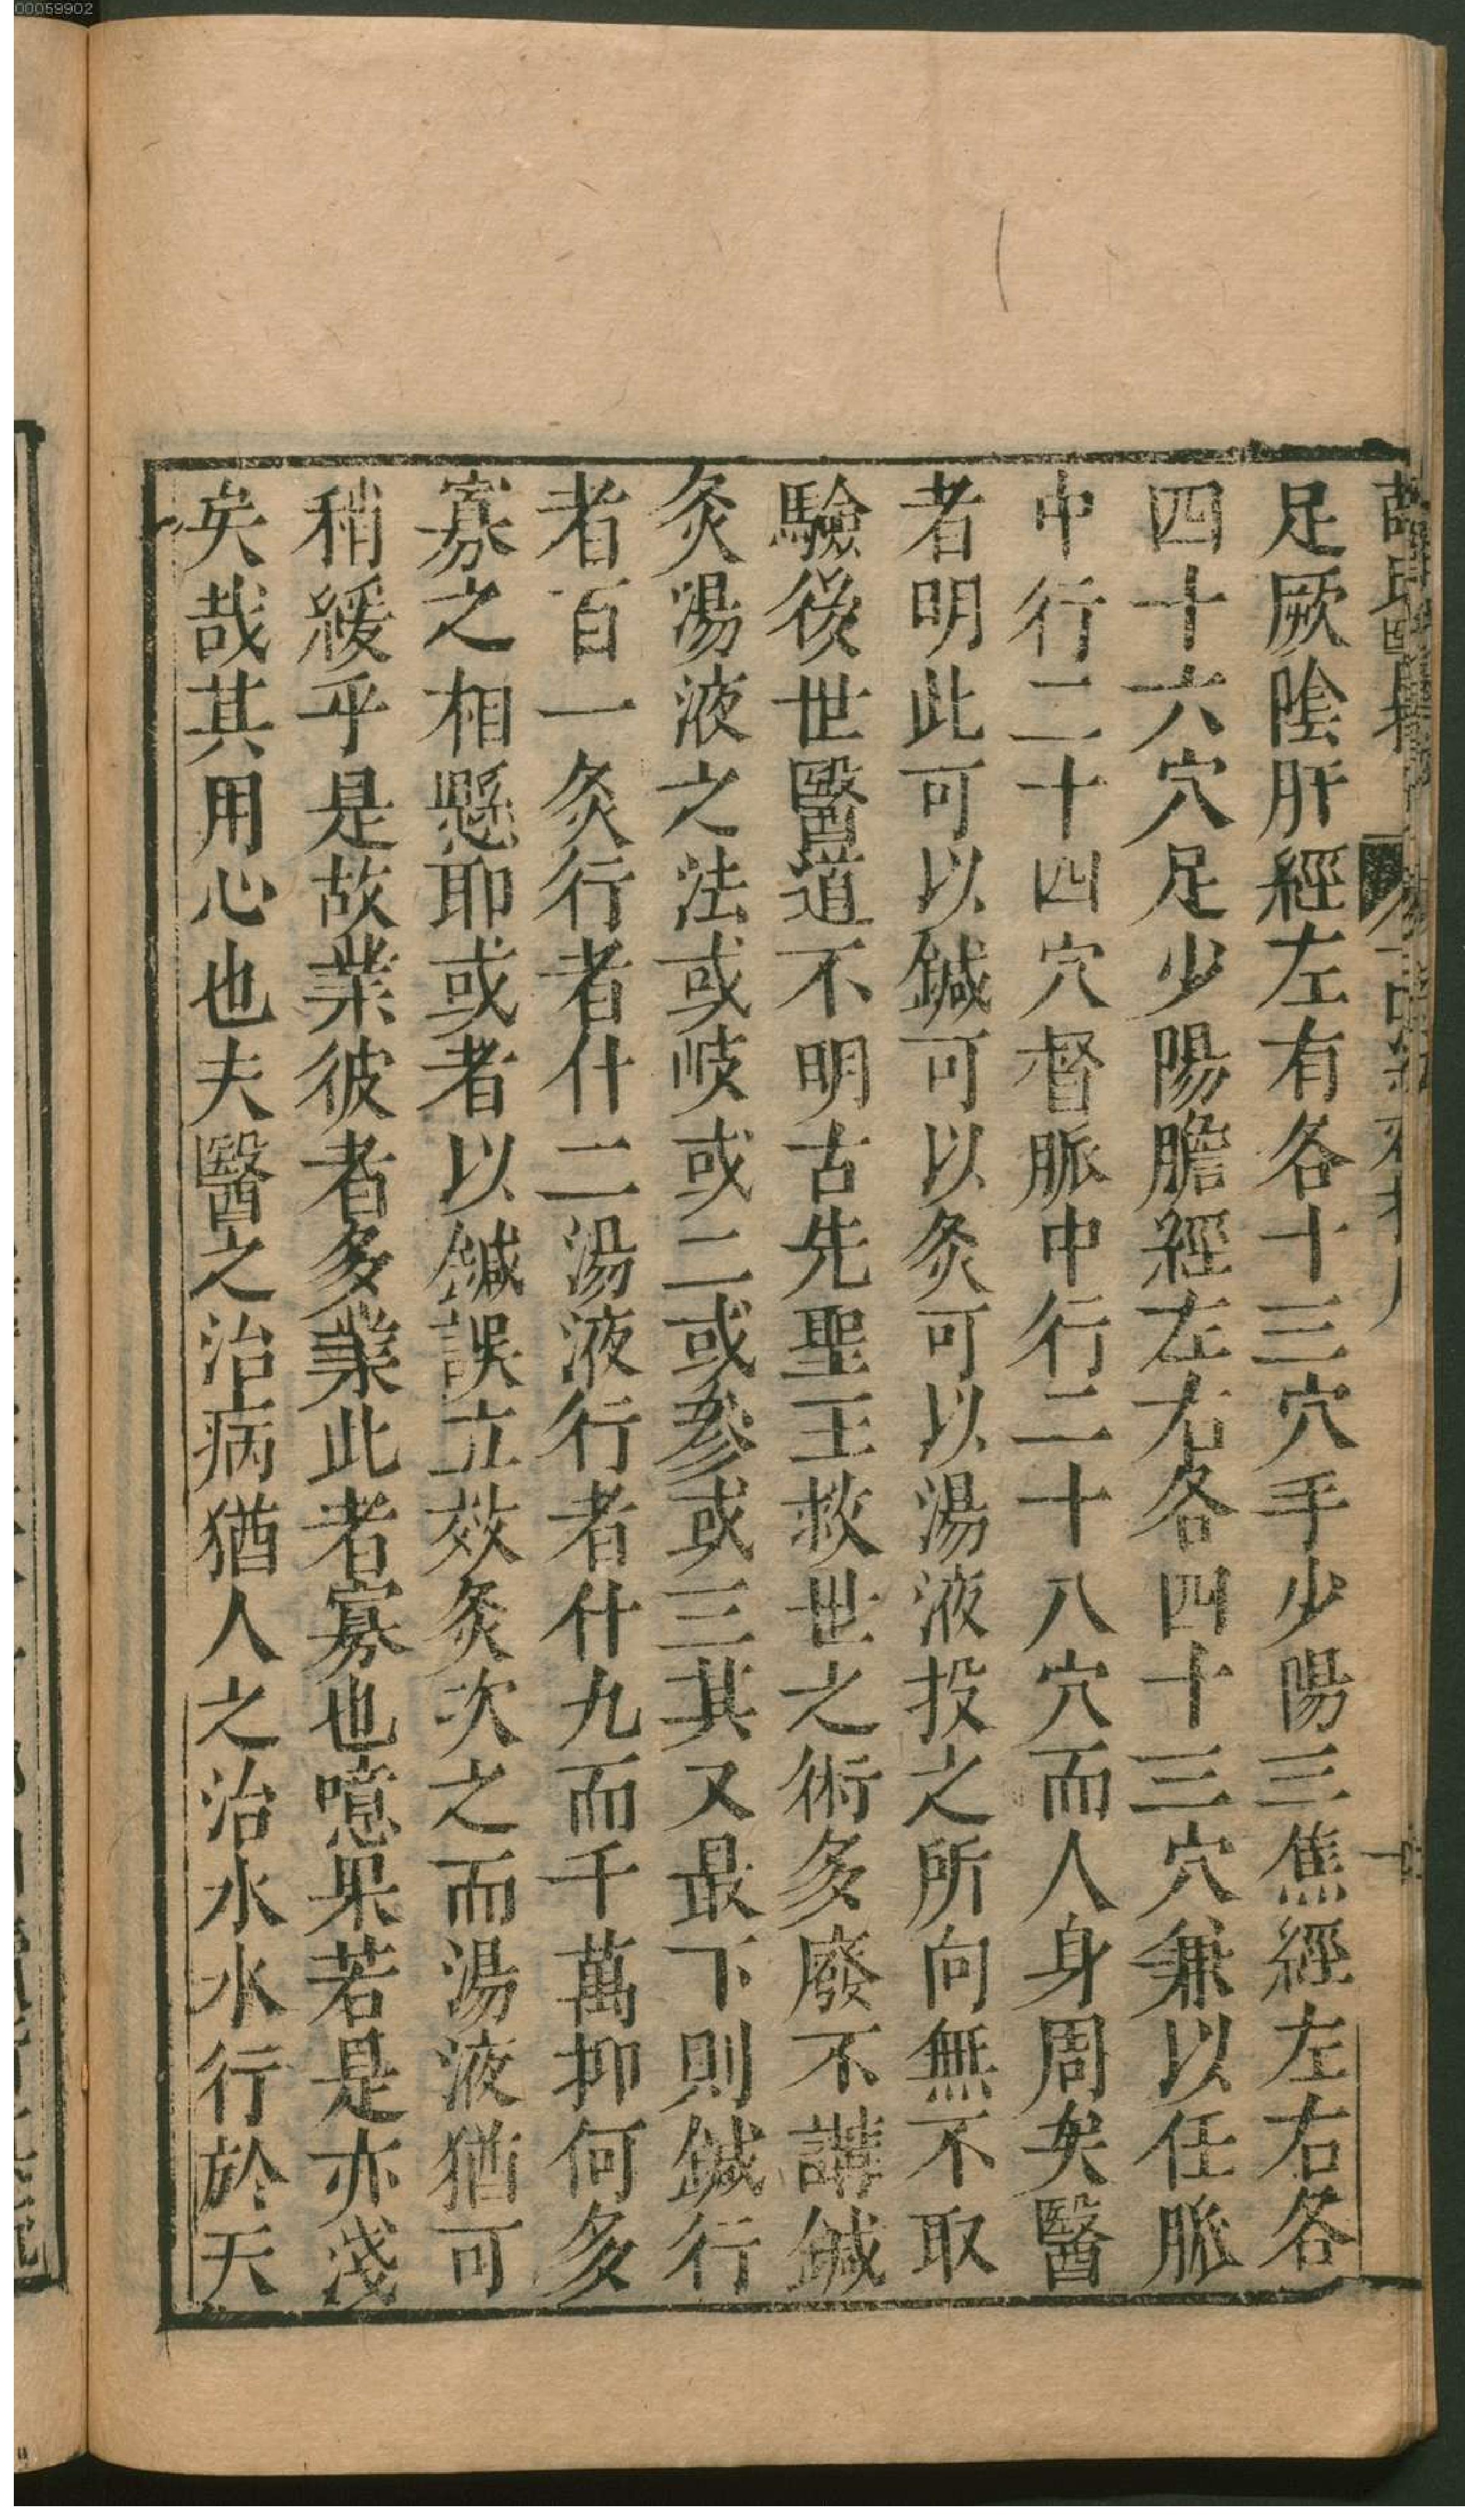 00059902
足厥陰肝經左有各十三穴手少陽三焦經左右各
四十六穴足少陽膽經左右各四十三穴兼以任脈
中行二十四穴督脈中行二十八穴而人身周矣醫
者明此可以鍼可以灸可以湯液投之所向無不取
驗後世醫道不明古先聖王救世之術多廢不講鍼
灸湯液之法或岐或二或參或三其又最下則鍼行
者百一灸行者什二湯液行者什九而千萬抑何多
寡之相懸耶或者以鍼誤立效灸次之而湯液猶可
稍緩乎是故業彼者多業此者寡也噫果若是亦淺
矣哉其用心也夫醫之治病猶人之治水水行於天